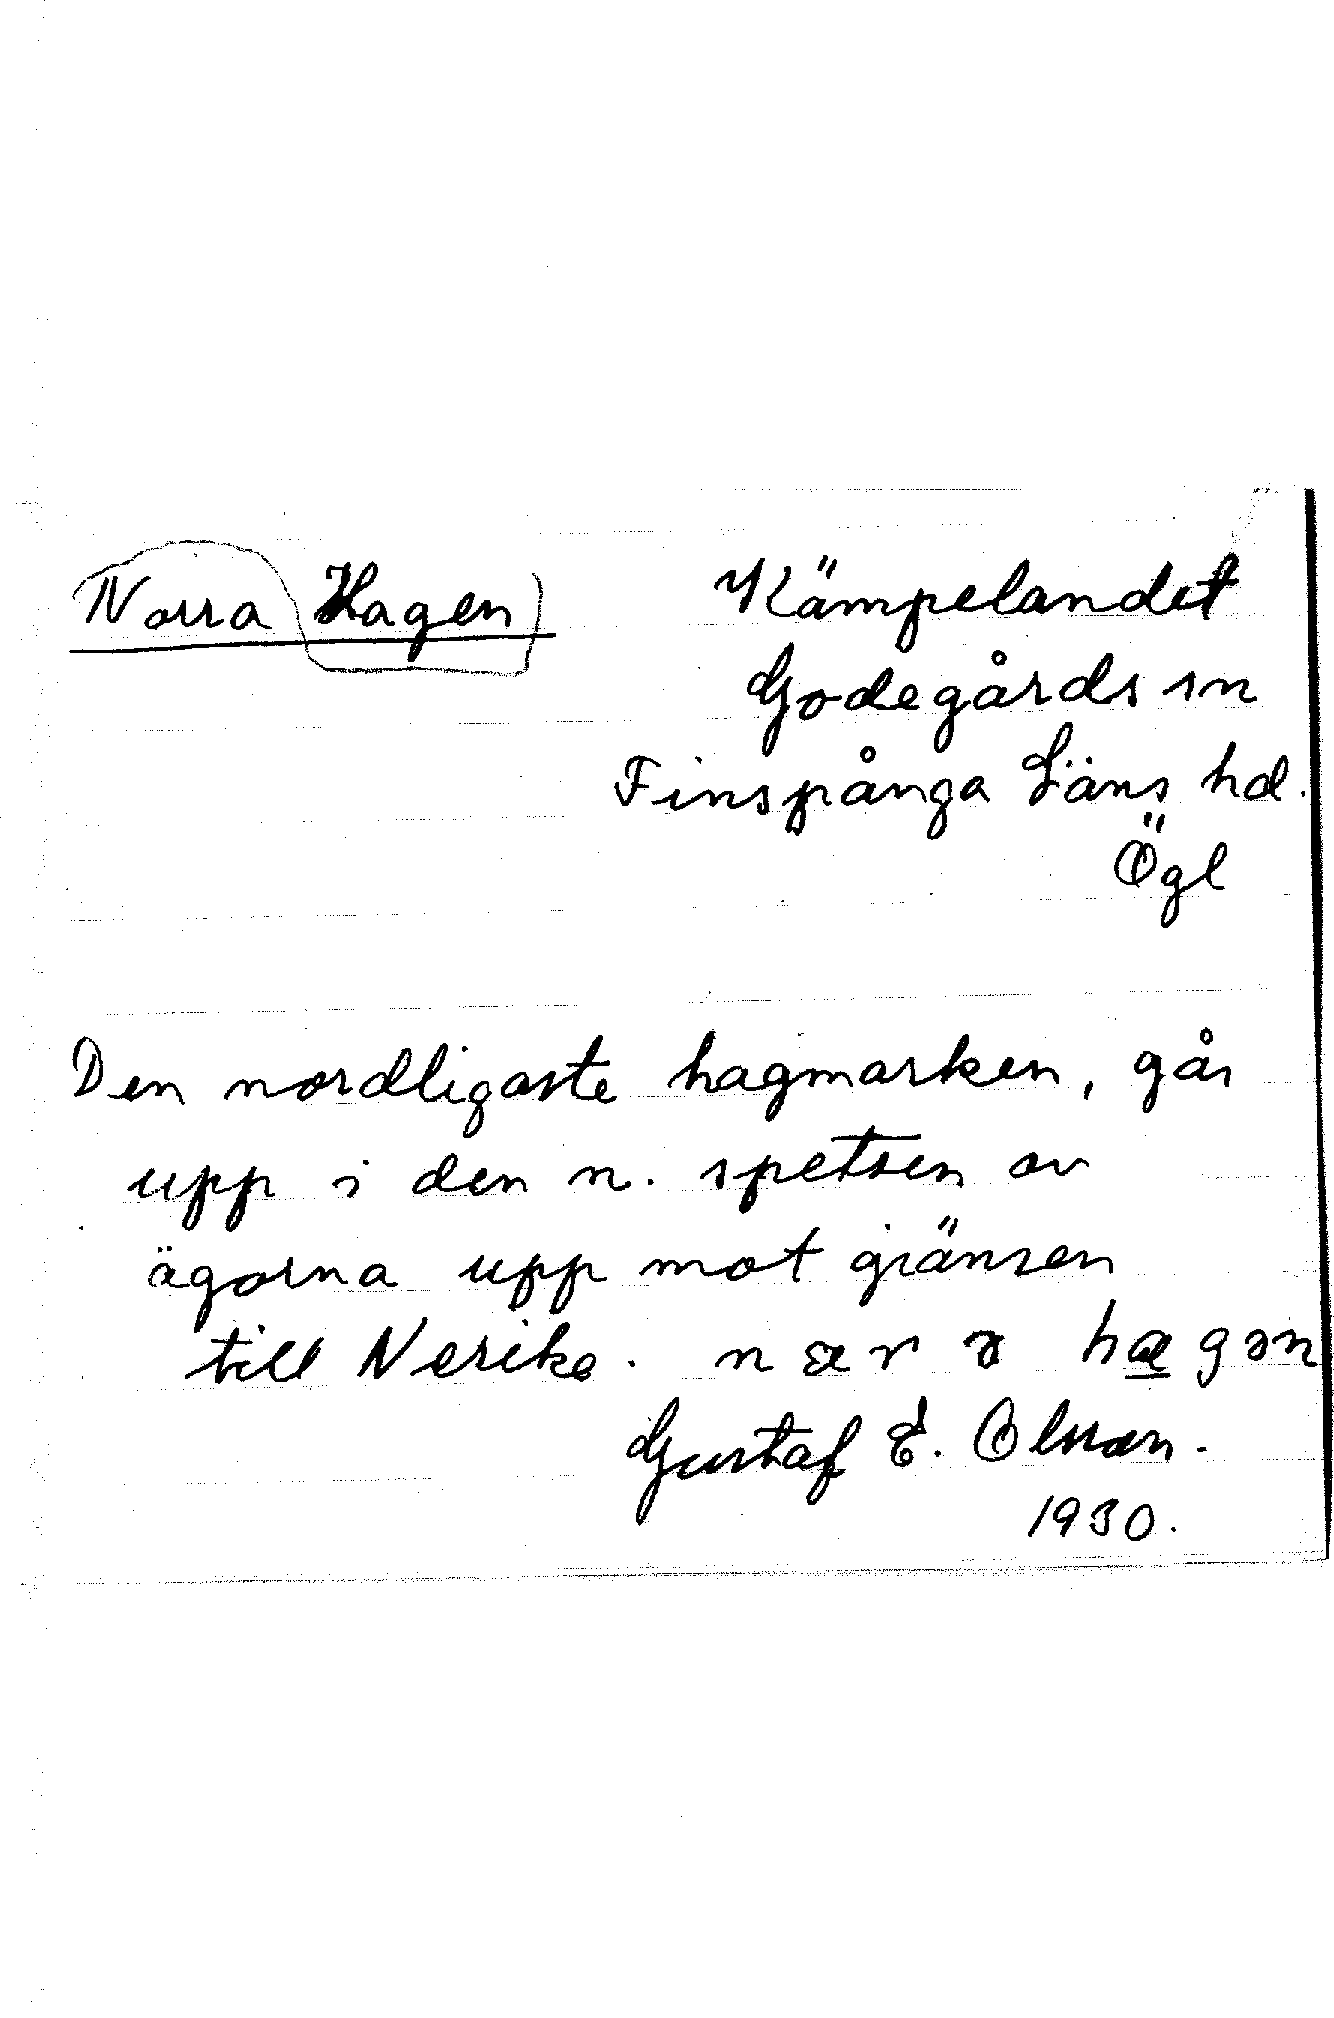 Norra Hagen
Kämpelandet
Godegårds sn
Finspånga Läns hd.
Ögl
Den nordligaste hagmarken, går
upp i den n. spetsen av
ägorna upp mot gränsen
till Nerike.
Gustaf E. Olsson.
1930.